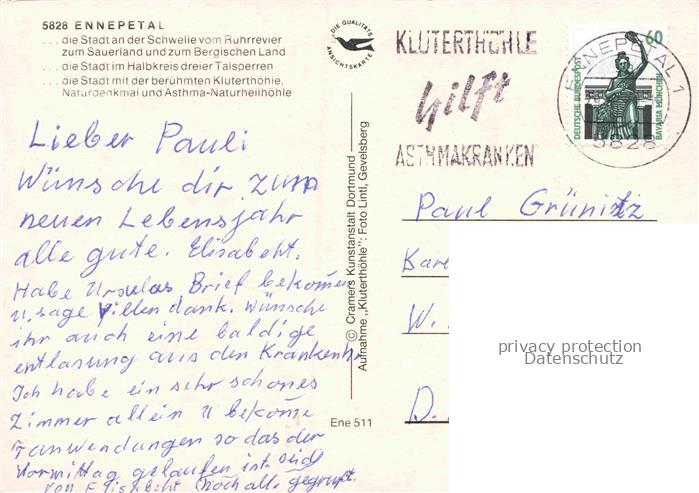 5828 ENNEPETAL
... die Stadt an der Schwelle vom Ruhrrevier
zum Sauerland und zum Bergischen Land
... die Stadt im Halbkreis dreier Talsperren
... die Stadt mit der berühmten Kluterthöhle,
Naturdenkmal und Asthma-Naturheilhöhle
DIE QUALITÄTS
ANSICHTSKARTE
KLUTERTHÖHLE
hilft
ASTHMAKRANKEN
ENNEPETAL 1
5828
60
DEUTSCHE BUNDESPOST
BAVARIA MÜNCHEN
Lieber Pauli
Wünsche dir zum
neuen Lebensjahr
alle gute. Elisabeht.
Habe Ursulas Brief bekomen
u. sage Villen dank. Wünsche
ihr auch eine baldige
entlasung aus den Krankenh.
Ich habe ein sehr schones
Zimmer allein u bekome
7 anwendungen so das der
Vormittag gelaufen ist. seid
von Elisabeht noch alle gegrüst.
© Cramers Kunstanstalt Dortmund
Aufnahme „Kluterthöhle": Foto Lintl, Gevelsberg
Ene 511
Paul Grünitz
W.
D.
privacy protection
Datenschutz